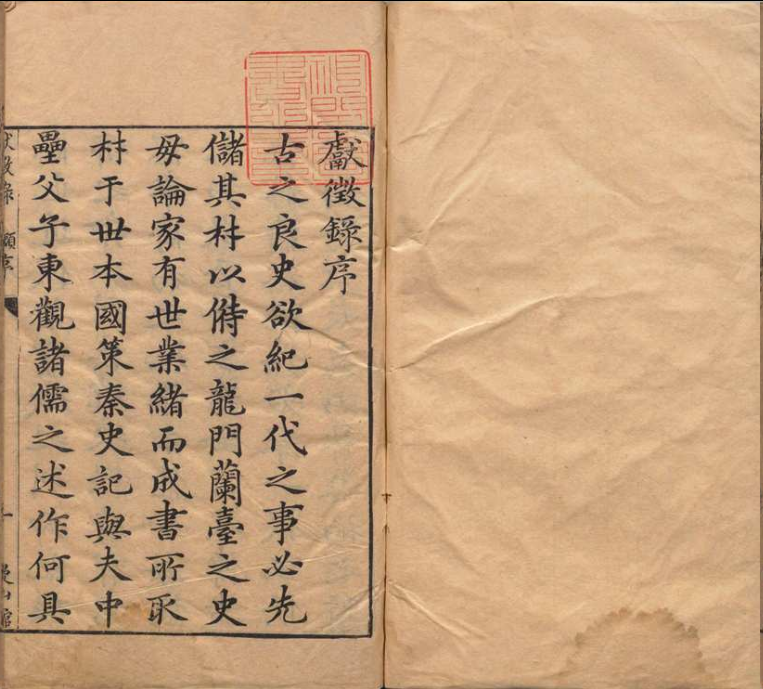 獻徵錄序
古之良史欲紀一代之事必先
儲其材以偫之龍門蘭臺之史
毋論家有世業緒而成書所取
材于世本國策秦史記與夫中
壘父子東觀諸儒之述作何具
獻徵錄 顧序
一
曼山館